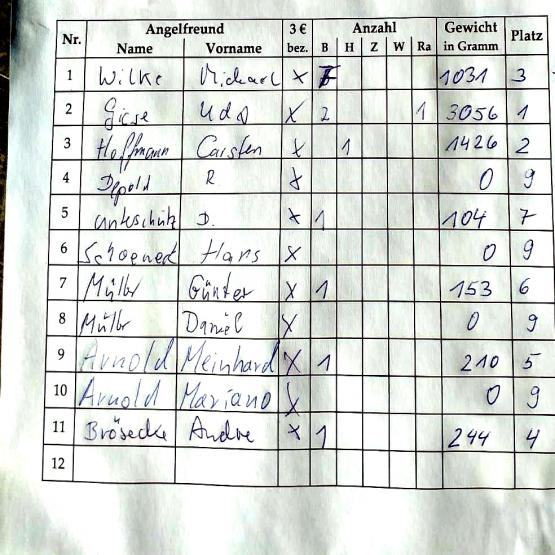 Nr. Angelfreund 3 € Anzahl Gewicht Platz
Name Vorname bez. B H Z W Ra in Gramm
1 Wilke Michael x 1031 3
2 Giese Udo x 2 1 3056 1
3 Hoffmann Carsten x 1 1426 2
4 Depold R x 0 9
5 Unteschütz D. x 1 104 7
6 Hans x 0 9
7 Müller Günter x 1 153 6
8 Müller Daniel x 0 9
9 Arnold Meinhard x 1 210 5
10 Arnold Mariano x 0 9
11 Brösecke Andre x 1 244 4
12